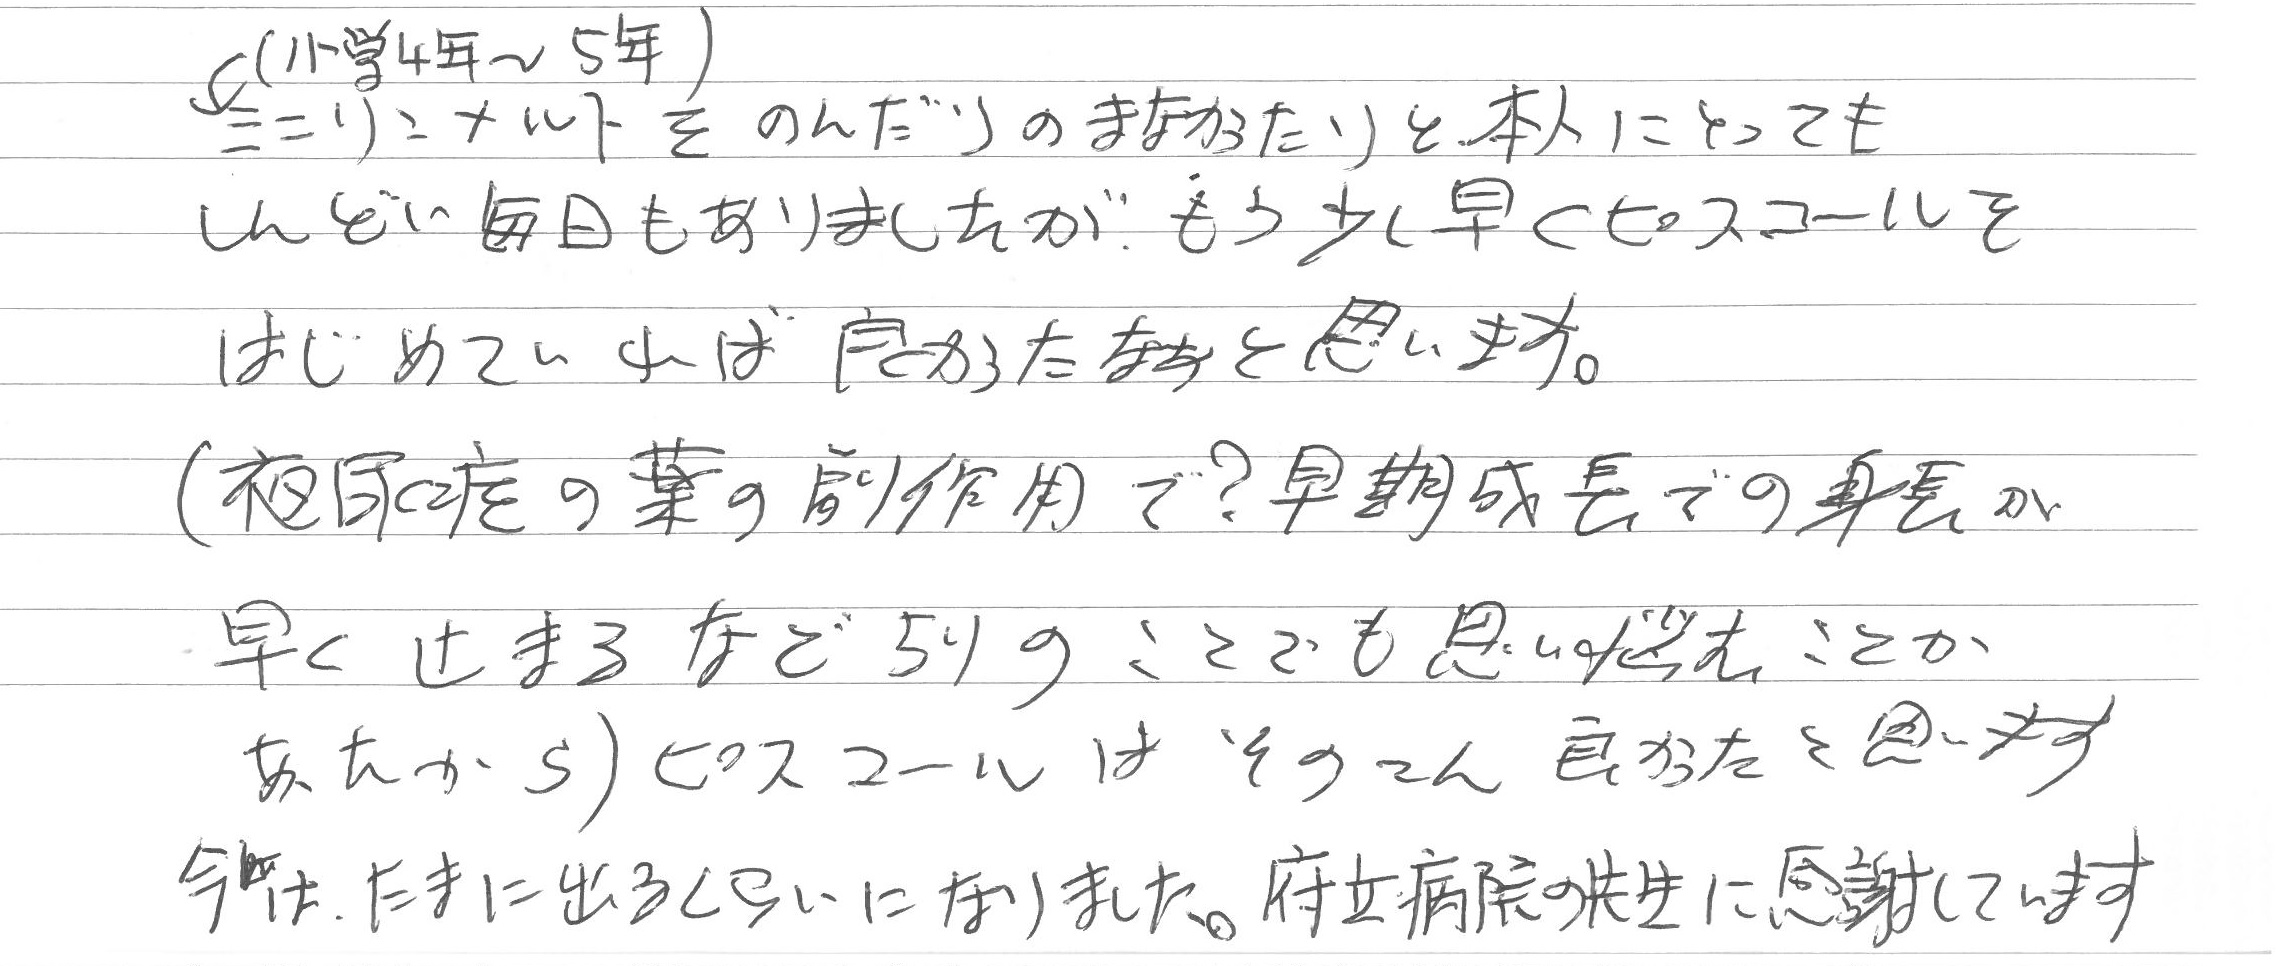 (小学4年～5年)
ミニリンメルトを のんだりのまなかったりと本人にとっても
しんどい毎日もありましたが もう少し早くピスコールを
はじめていれば 良かったなあと思います。
(夜尿症の薬の副作用で?早期成長での身長が
早く止まるなど 別のことでも思い悩むことが
あったから)ピスコールは そのてん 良かったと思います
今は.たまに出るくらいになりました。府立病院の先生に感謝しています